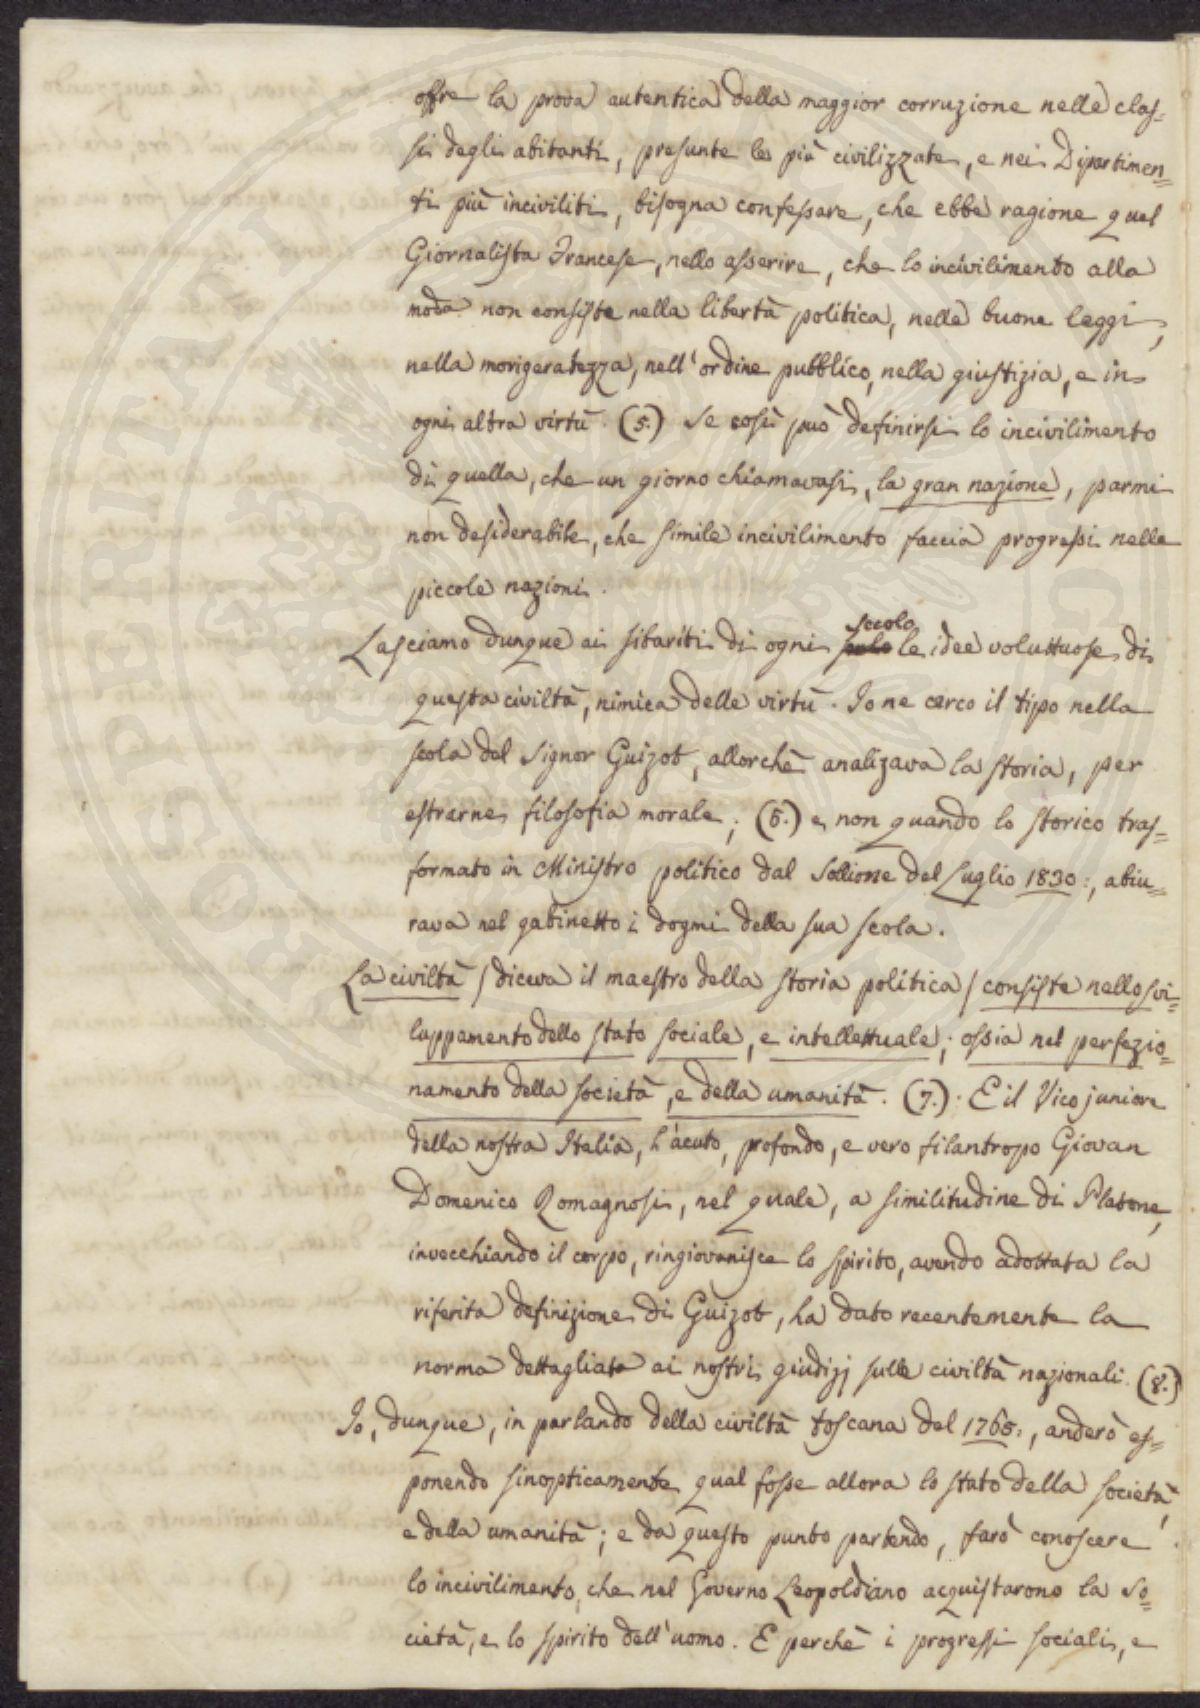 offre la prova autentica della maggior corruzione nelle clas=
si degli abitanti, presunte le più civilizzate, e nei Dipartimen=
ti più inciviliti, bisogna confessare, che ebbe ragione quel
Giornalista Francese, nello asserire, che lo incivilimento alla
moda non consiste nella libertà politica, nelle buone leggi,
nella morigeratezza, nell'ordine pubblico, nella giustizia, e in
ogni altra virtù. (5.) Se così può definirsi lo incivilimento
di quella, che un giorno chiamavasi, la gran nazione, parmi
non desiderabile, che simile incivilimento faccia progressi nelle
piccole nazioni.
secolo
Lasciamo dunque ai sibariti di ogni le idee voluttuose di
questa civiltà, nimica delle virtù. Io ne cerco il tipo nella
scola del Signor Guizot, allorchè analizava la storia, per
estrarne filosofia morale; (6.) e non quando lo storico tras=
formato in Ministro politico dal Sollione del Luglio 1830:, abiu=
rava nel gabinetto i dogmi della sua scola.
La civiltà / diceva il maestro della storia politica / consiste nello svi=
luppamento dello stato sociale, e intellettuale; ossia nel perfezio=
namento della società, e della umanità. (7.). E il Vico juniore
della nostra Italia, l'acuto, profondo, e vero filantropo Giovan
Domenico Romagnosi, nel quale, a similitudine di Platone,
invecchiando il corpo, ringiovanisce lo spirito, avendo adottata la
riferita definizione di Guizot, ha dato recentemente la
norma dettagliata ai nostri giudizj sulle civiltà nazionali. (8.)
Io, dunque, in parlando della civiltà toscana del 1765:, anderò es=
ponendo sinopticamente qual fosse allora lo stato della società,
e della umanità; e da questo punto partendo, farò conoscere
lo incivilimento, che nel Governo Leopoldiano acquistarono la So=
cietà, e lo spirito dell'uomo. E perchè i progressi sociali, e